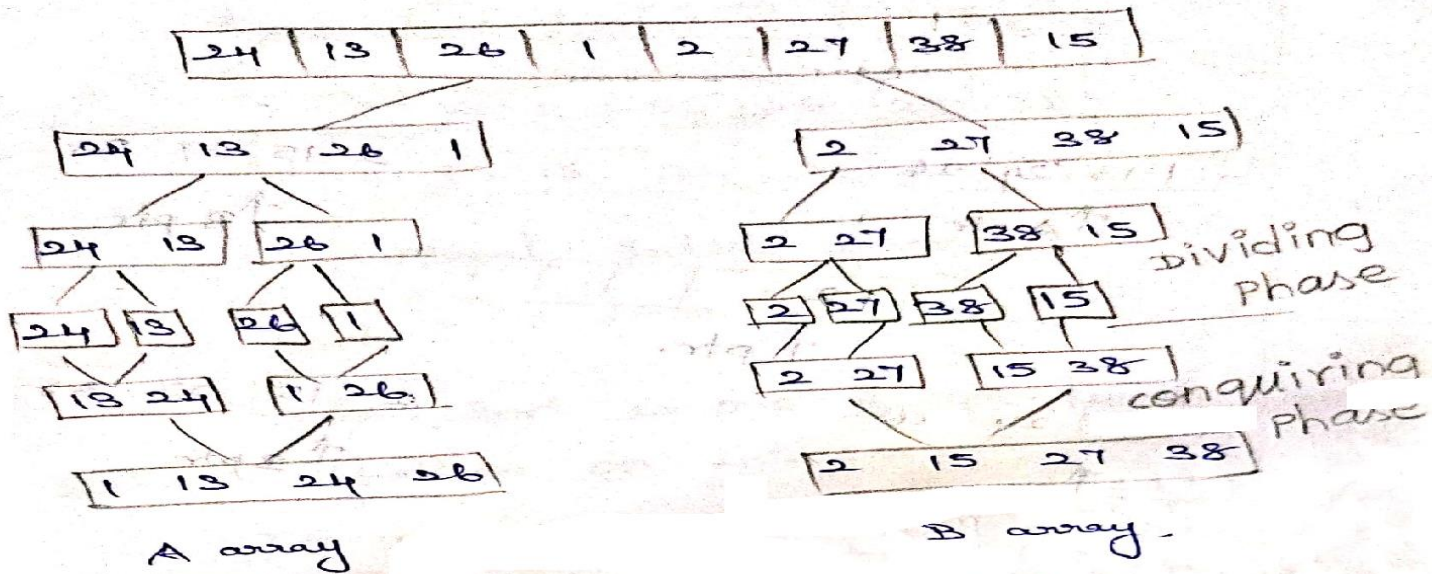 24 13 26 1 2 27 38 15
24 13 26 1
2 27 38 15
24 13
26 1
2 27
38 15
Dividing
Phase
24
13
26
1
2
27
38
15
13 24
1 26
2 27
15 38
conquiring
Phase
1 13 24 26
2 15 27 38
A array
B array.